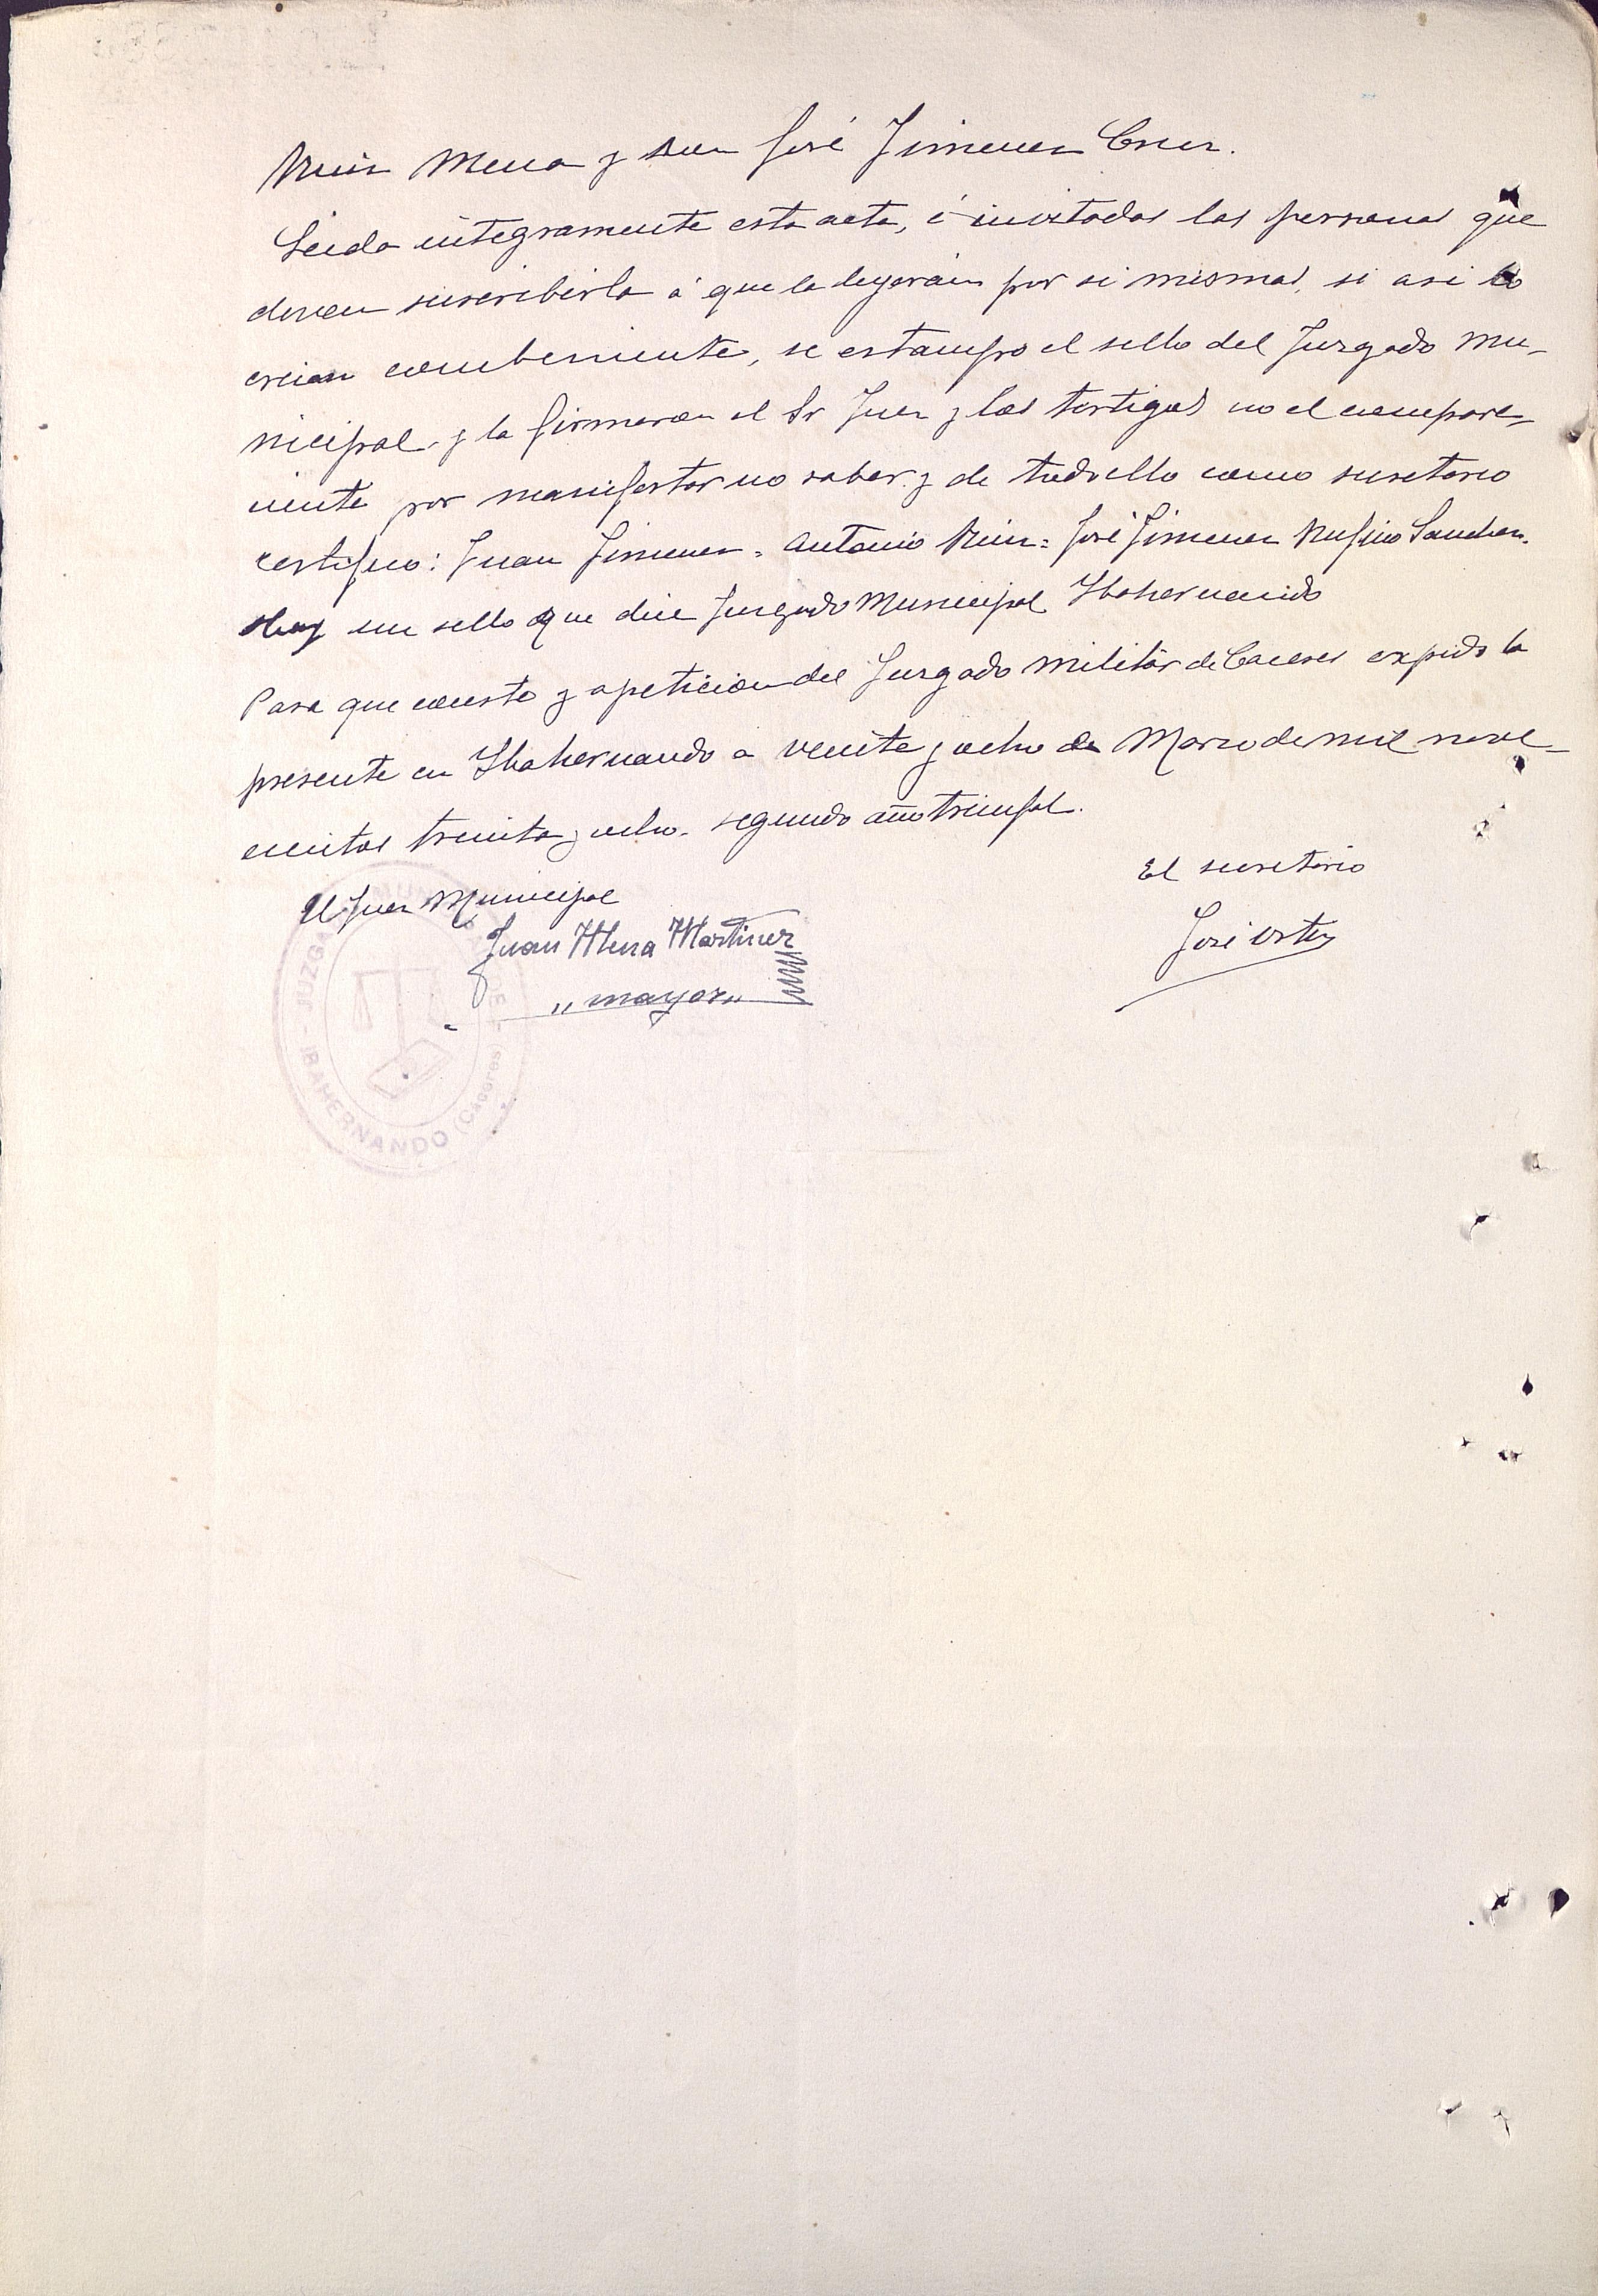 Ruiz Mena y don José Jimenez Cruz.
Leida integramente esta acta, é invitadas las personas que
deven suscribirla á que la leyeran por si mismas, si asi lo
creian combeniente, se estampo el sello del Juzgado Mu-
nicipal y la firmaron el Sr Juez y los testigos no el compare-
ciente por manifestar no saber y de todo ello como secretario
certifico: Juan Jimenez = Antonio Ruiz = José Jimenez Rufino Sanchez.
Hay un sello que dice Juzgado Municipal Ibahernando
Para que conste y a peticion del Juzgado Militar de Caceres expido la
presente en Ibahernando a veinte y ocho de Marzo de mil nove-
cientos treinta y ocho. segundo año triunfal.
El Juez Municipal
Juan Mena Martinez
"mayor"
El secretario
José
JUZGADO MUNICIPAL
IBAHERNANDO (Cáceres)